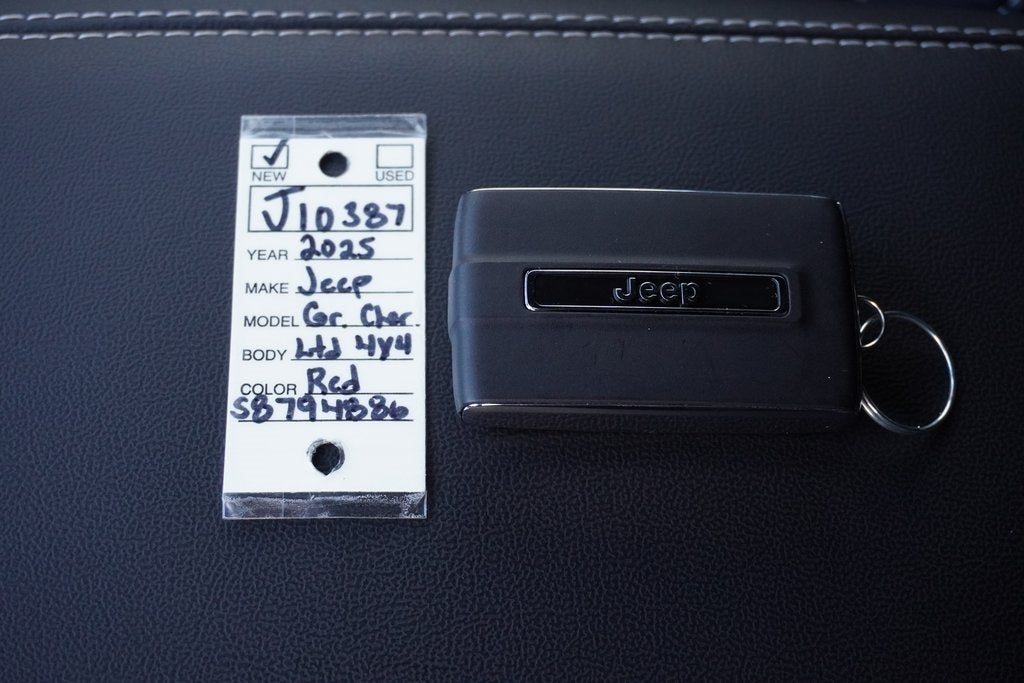 NEW USED
J10387
YEAR 2025
MAKE Jeep
MODEL Gr. Cher.
BODY Ltd 4x4
COLOR Red
S8794886
Jeep